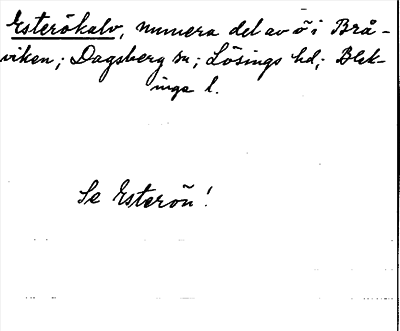 Esterökalv, numera del av ö i Brå-
viken; Dagsberg sn; Lösings hd; Blek-
inge l.
Se Esterön!